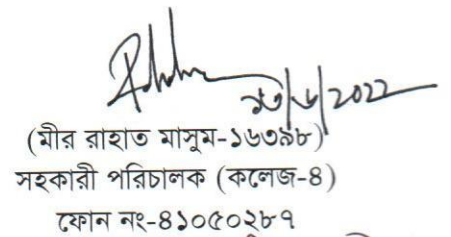 ১৩/৬/2022
(মীর রাহাত মাসুম-১৬৩৯৮)
সহকারী পরিচালক (কলেজ-৪)
ফোন নং-৪১০৫০২৮৭